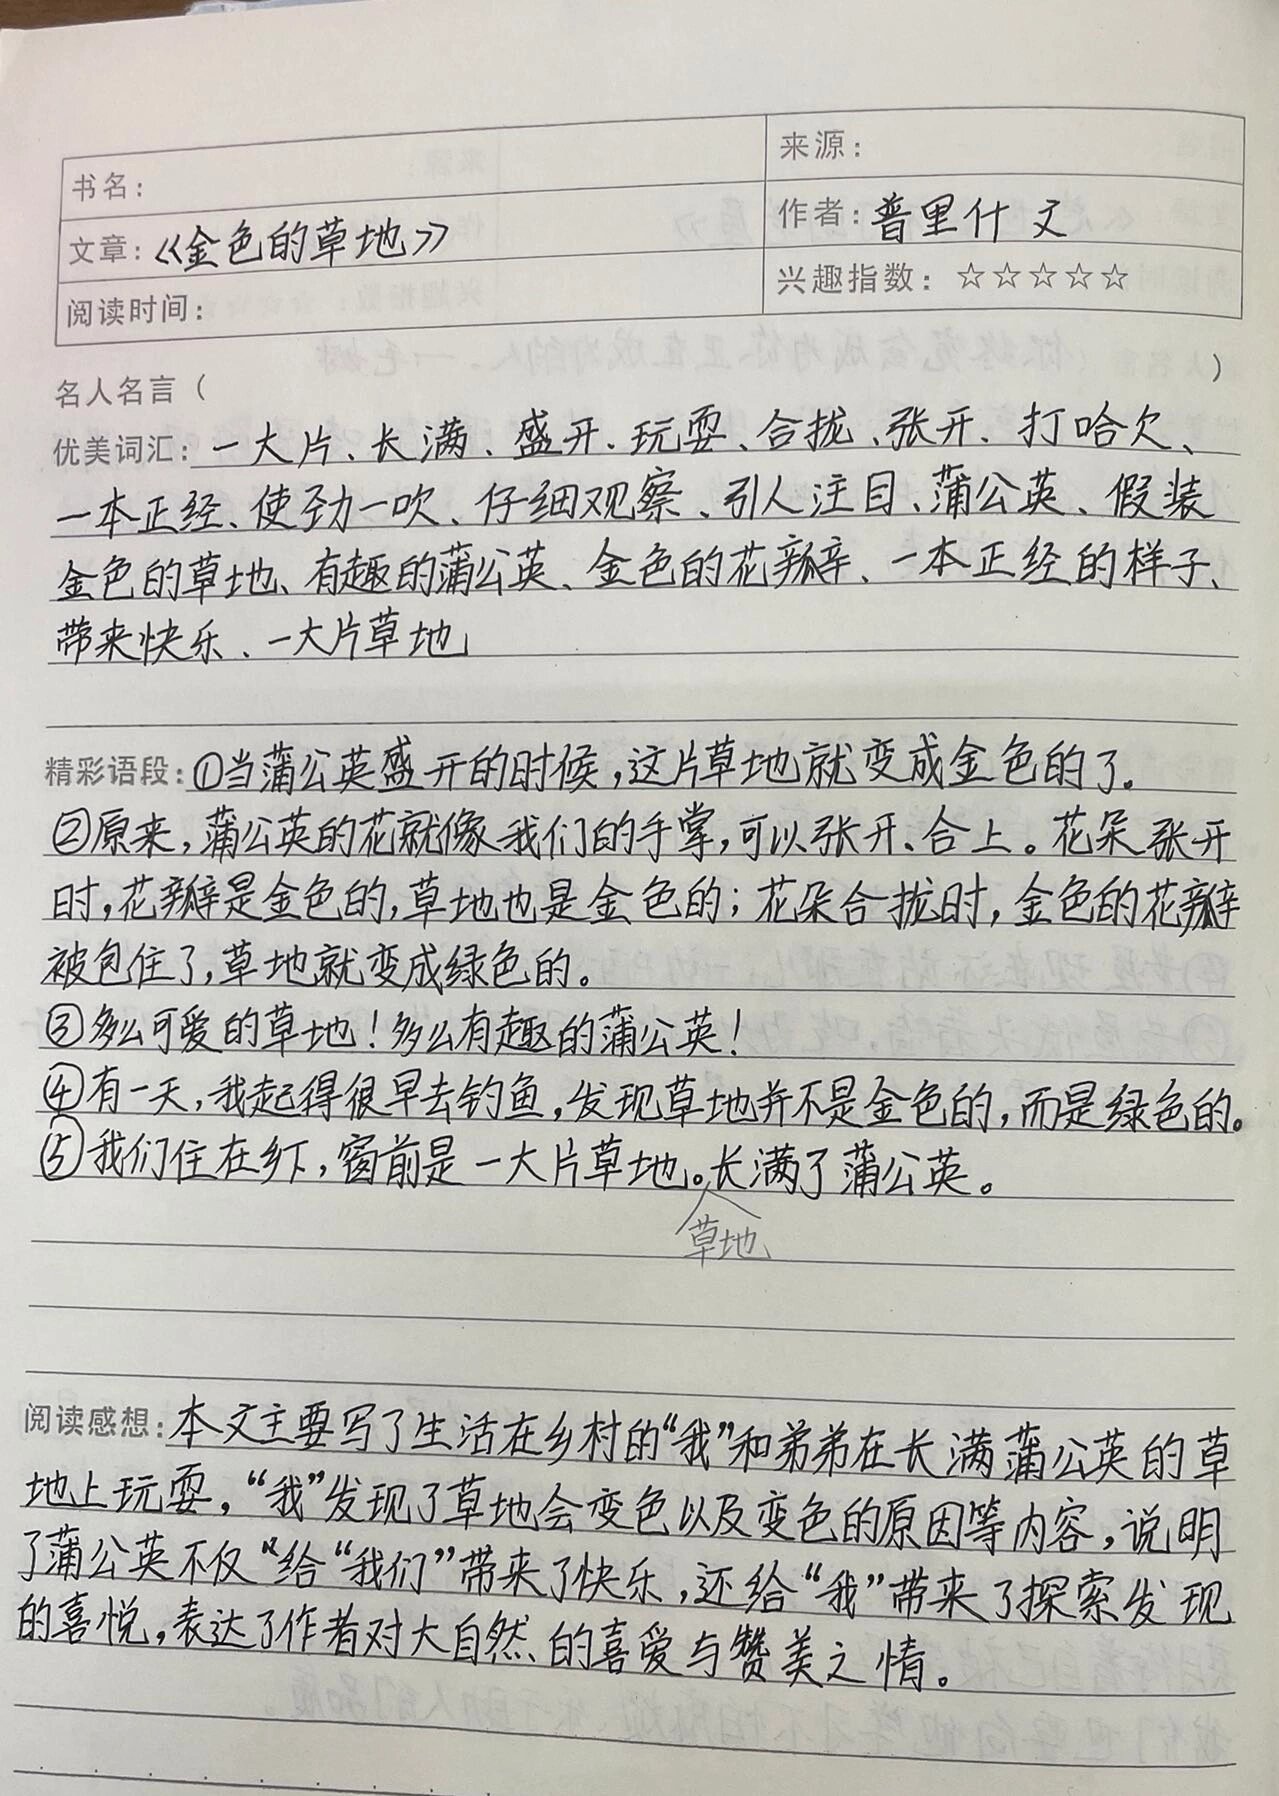 书名：
来源：
文章：《金色的草地》
作者：普里什文
阅读时间：
兴趣指数：☆☆☆☆☆
名人名言（ ）
优美词汇：一大片、长满、盛开、玩耍、合拢、张开、打哈欠、
一本正经、使劲一吹、仔细观察、引人注目、蒲公英、假装
金色的草地、有趣的蒲公英、金色的花瓣、一本正经的样子、
带来快乐、一大片草地
精彩语段：①当蒲公英盛开的时候，这片草地就变成金色的了。
②原来，蒲公英的花就像我们的手掌，可以张开、合上。花朵张开
时，花瓣是金色的，草地也是金色的；花朵合拢时，金色的花瓣
被包住了，草地就变成绿色的。
③多么可爱的草地！多么有趣的蒲公英！
④有一天，我起得很早去钓鱼，发现草地并不是金色的，而是绿色的。
⑤我们住在乡下，窗前是一大片草地。长满了蒲公英。
草地
阅读感想：本文主要写了生活在乡村的“我”和弟弟在长满蒲公英的草
地上玩耍，“我”发现了草地会变色以及变色的原因等内容，说明
了蒲公英不仅“给“我们”带来了快乐，还给“我”带来了探索发现
的喜悦，表达了作者对大自然的喜爱与赞美之情。